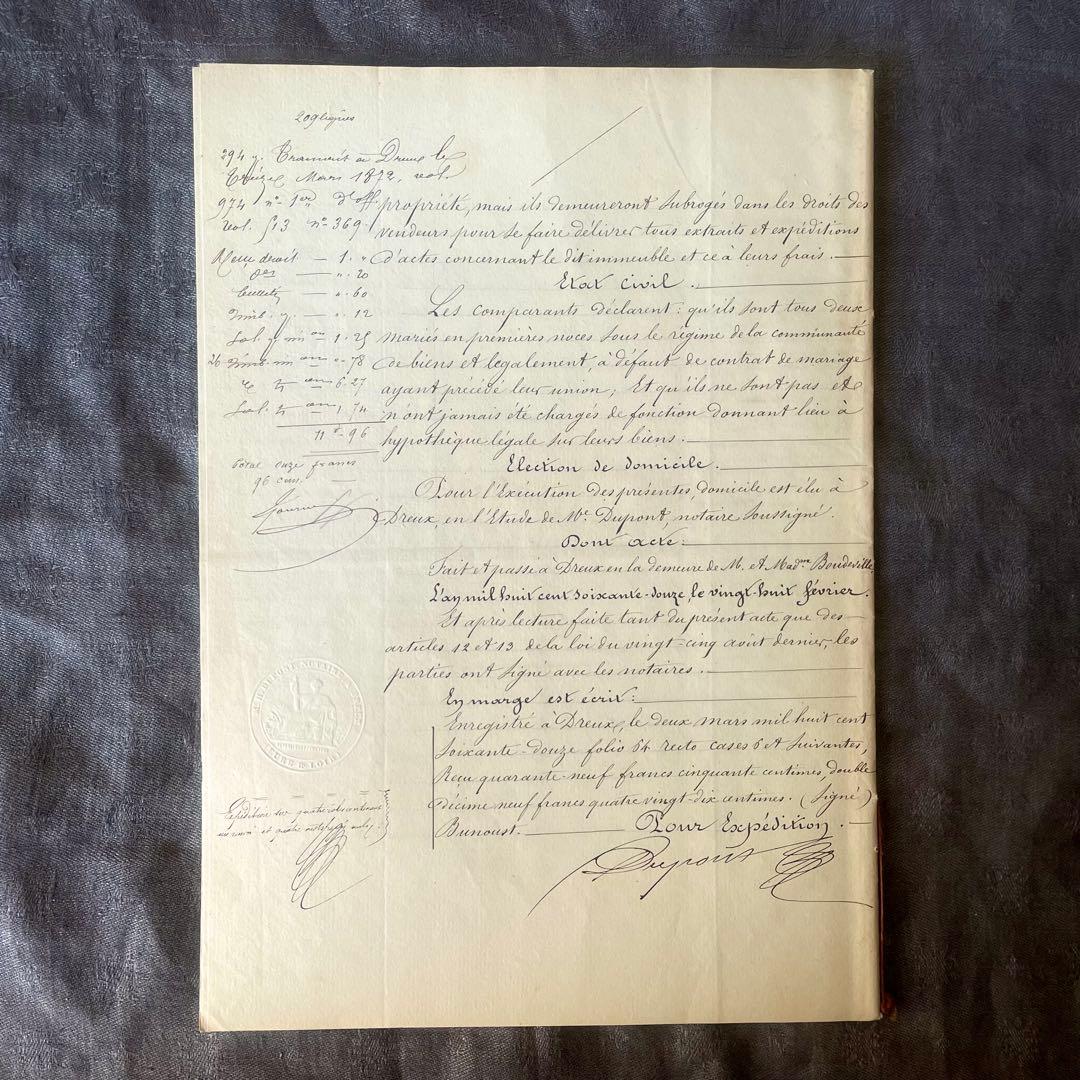 209 lignes
294 y. Transcrit à Dreux le
treize Mars 1872, vol.
974 nº 1er d'off.
vol. 513 nº 369.
Reçu droit — 1. "
— ". 20
— ". 60
Timb. y. — ". 12
Sal. — 1. 25
26 Timb. — ". 78
— 6. 27
Sal. — 1. 74
11 f. 96
Total onze francs
96 cmes.
propriété, mais ils demeureront subrogés dans les droits des
vendeurs pour se faire délivrer tous extraits et expéditions
d'actes concernant le dit immeuble et ce à leurs frais.
Etat civil.
Les comparants déclarent : qu'ils sont tous deux
mariés en premières noces sous le régime de la communauté
de biens et légalement, à défaut de contrat de mariage
ayant précédé leur union ; Et qu'ils ne sont pas et
n'ont jamais été chargés de fonction donnant lieu à
hypothèque légale sur leurs biens.
Election de domicile.
Pour l'Exécution des présentes, domicile est élu à
Dreux, en l'Etude de Me. Dupont, notaire soussigné.
Dont acte :
Fait et passé à Dreux en la demeure de M. et Madme Boudeville,
L'an mil huit cent soixante-douze, le vingt-huit février.
Et après lecture faite tant du présent acte que des
articles 12 et 13 de la loi du vingt-cinq août dernier, les
parties ont signé avec les notaires.
En marge est écrit :
Enregistré à Dreux, le deux mars mil huit cent
soixante-douze folio 64 recto cases 6 et suivantes,
Reçu quarante-neuf francs cinquante centimes, double
décime neuf francs quatre vingt-dix centimes. (Signé)
Bunoust. Pour Expédition.
Dupont
NOTAIRE
EURE & LOIR